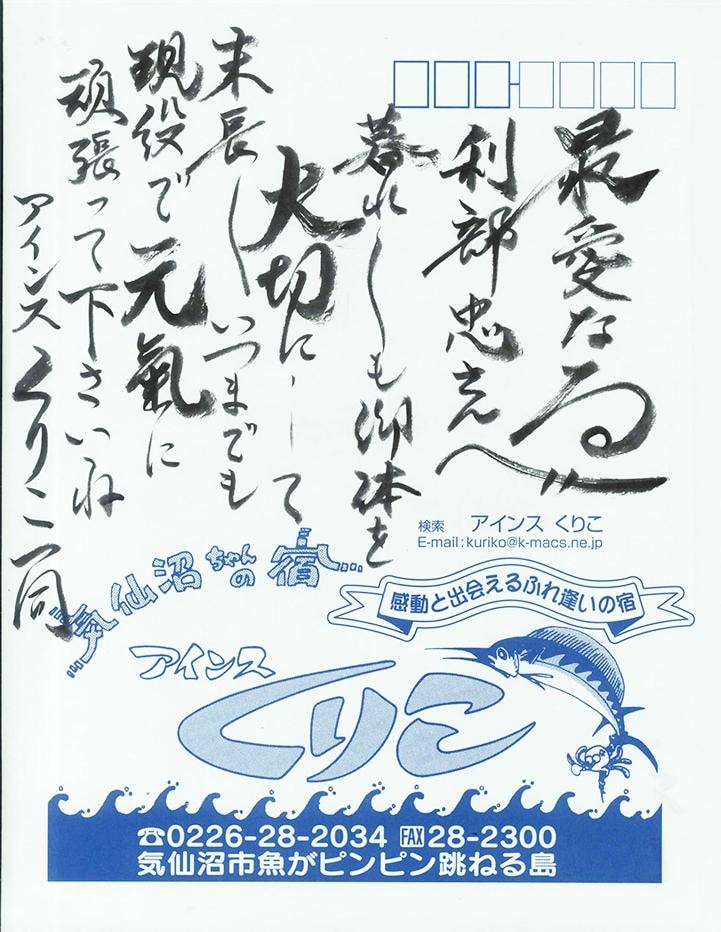 最愛なる
利部忠さんへ
暮れ〲も御体を
大切にして
末長くいつまでも
現役で元氣に
頑張って下さいね
アインスくりこ一同
検索 アインス くりこ
E-mail：kuriko@k-macs.ne.jp
気仙沼ちゃんの宿…
感動と出会えるふれ逢いの宿
アインス
くりこ
☎0226-28-2034 FAX28-2300
気仙沼市魚がピンピン跳ねる島